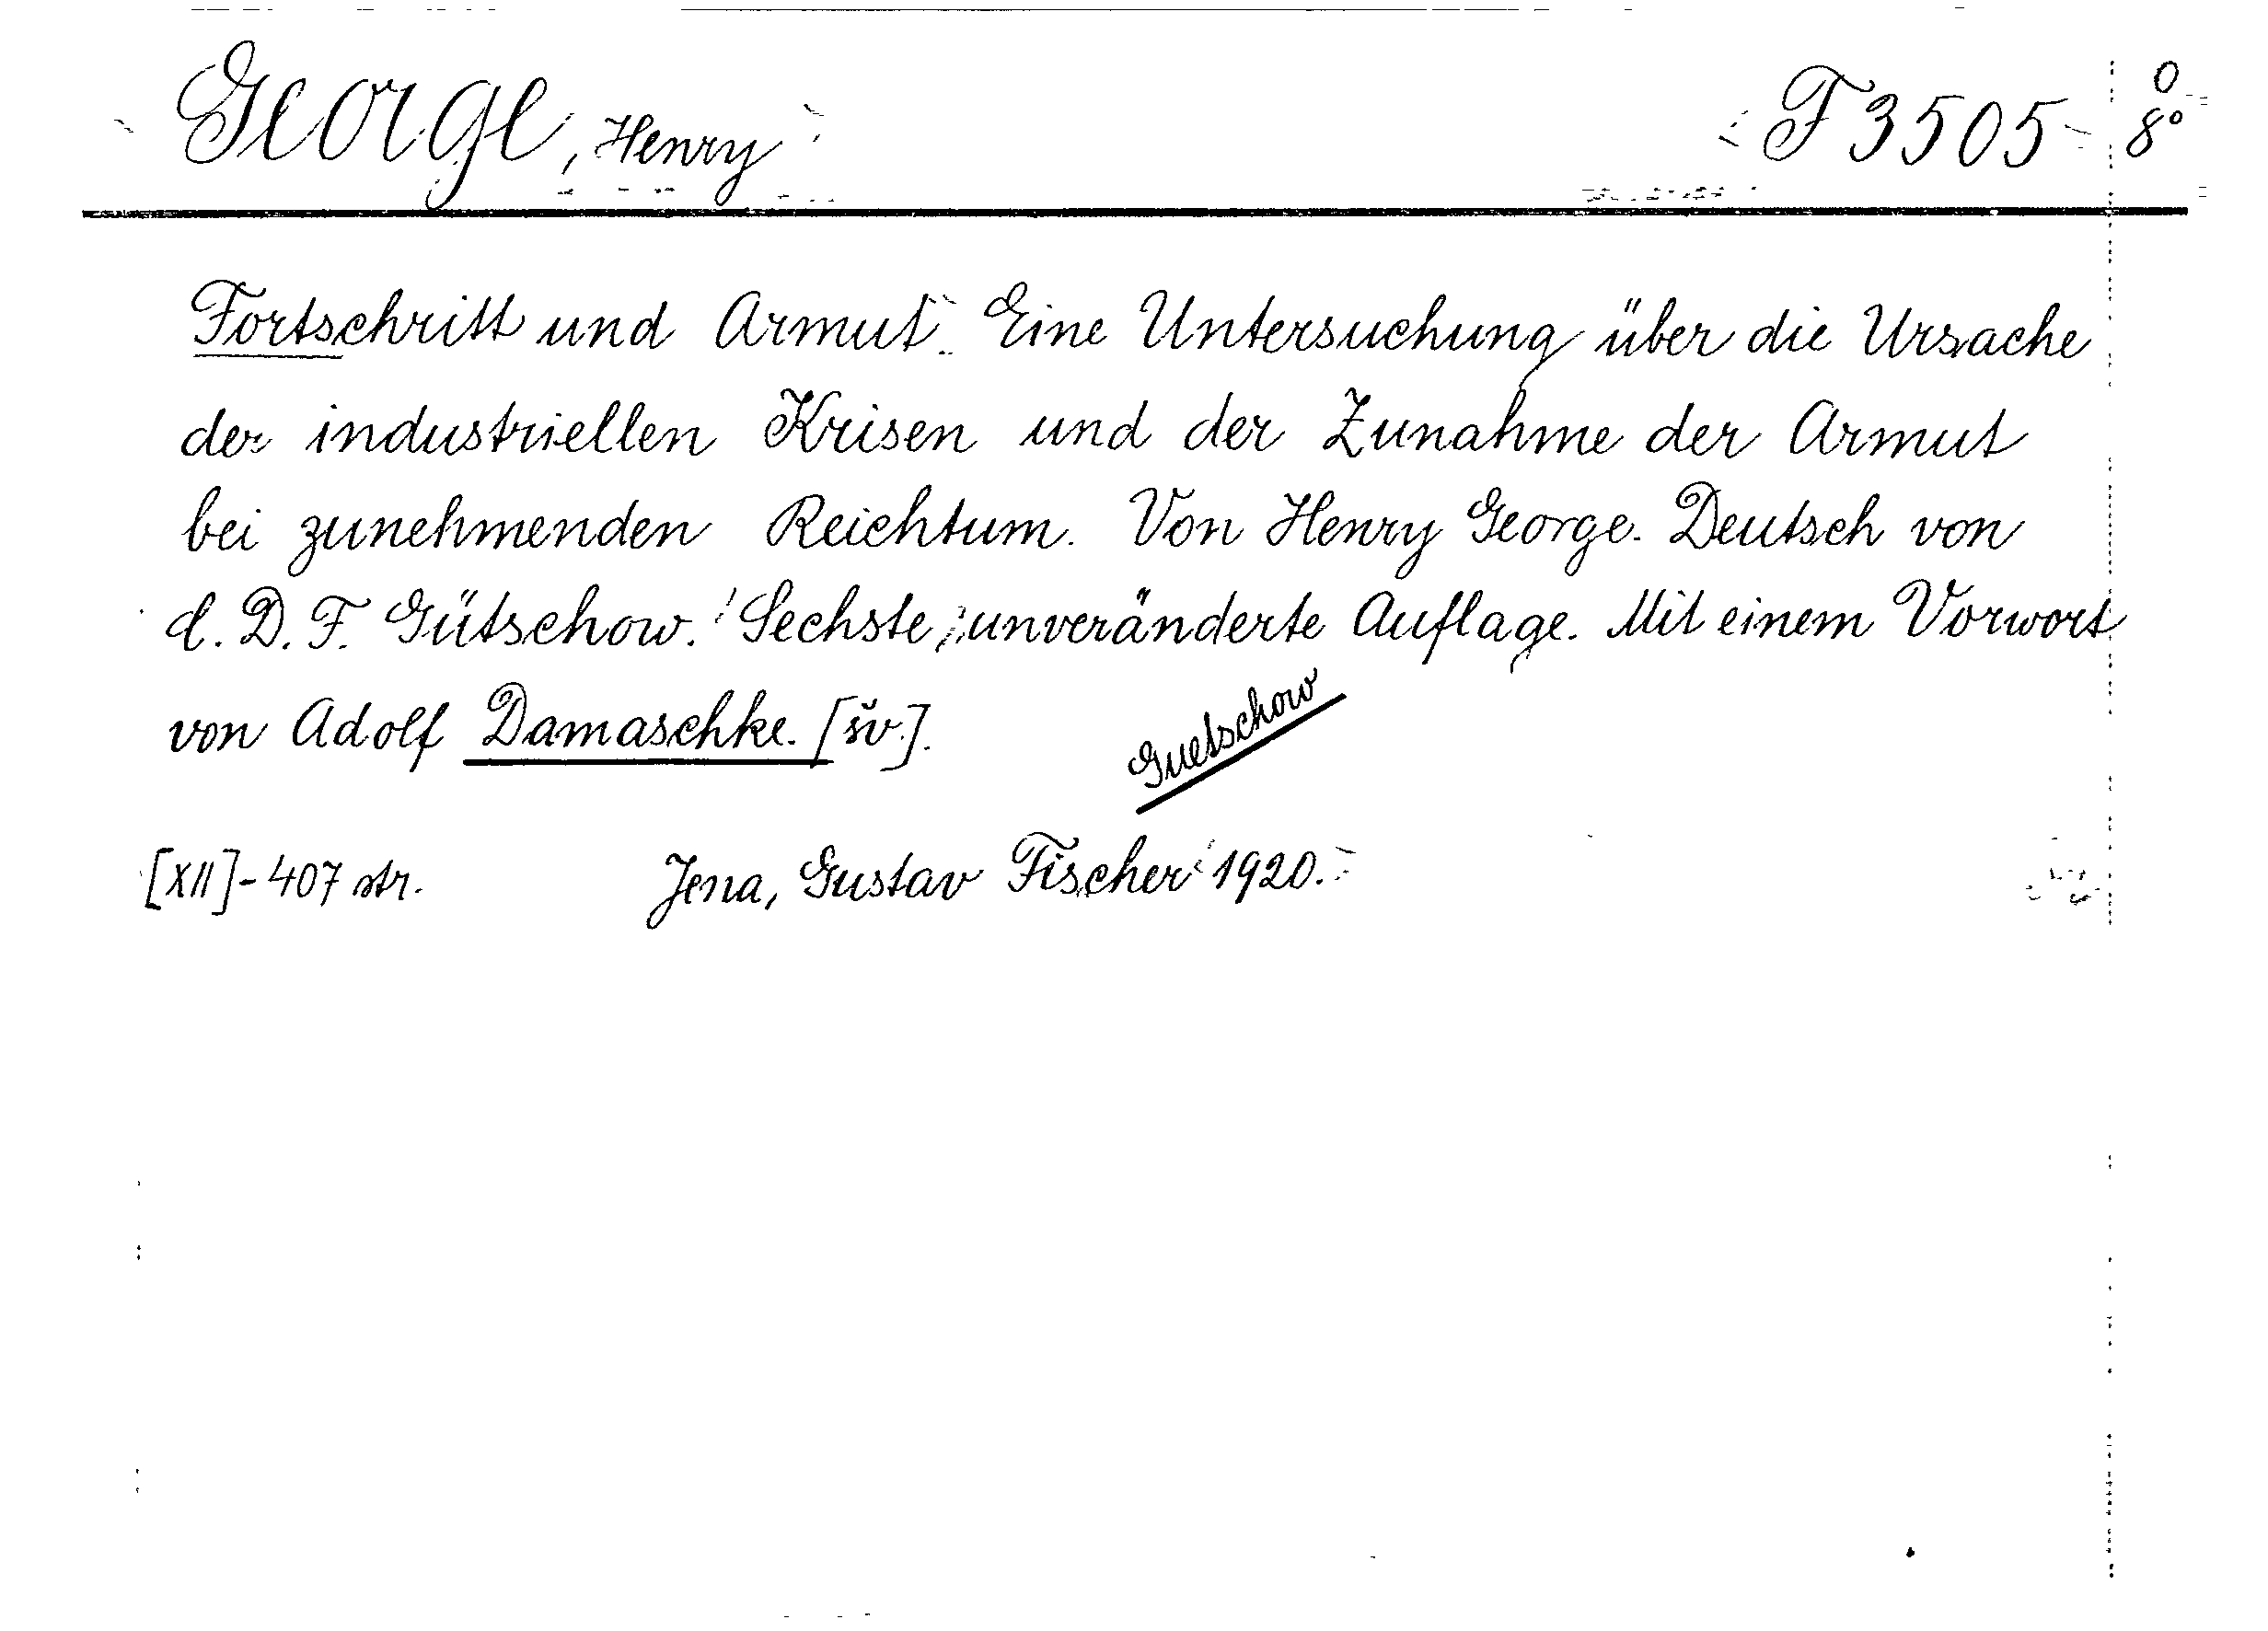 George, Henry F 3505 0 8°
Fortschritt und Armut. Eine Untersuchung über die Ursache
der industriellen Krisen und der Zunahme der Armut
bei zunehmenden Reichtum. Von Henry George. Deutsch von
C. D. F. Gütschow. Sechste, unveränderte Auflage. Mit einem Vorwort
von Adolf Damaschke. [šv.].
Guetschow
[XII]-407 str. Jena, Gustav Fischer 1920.